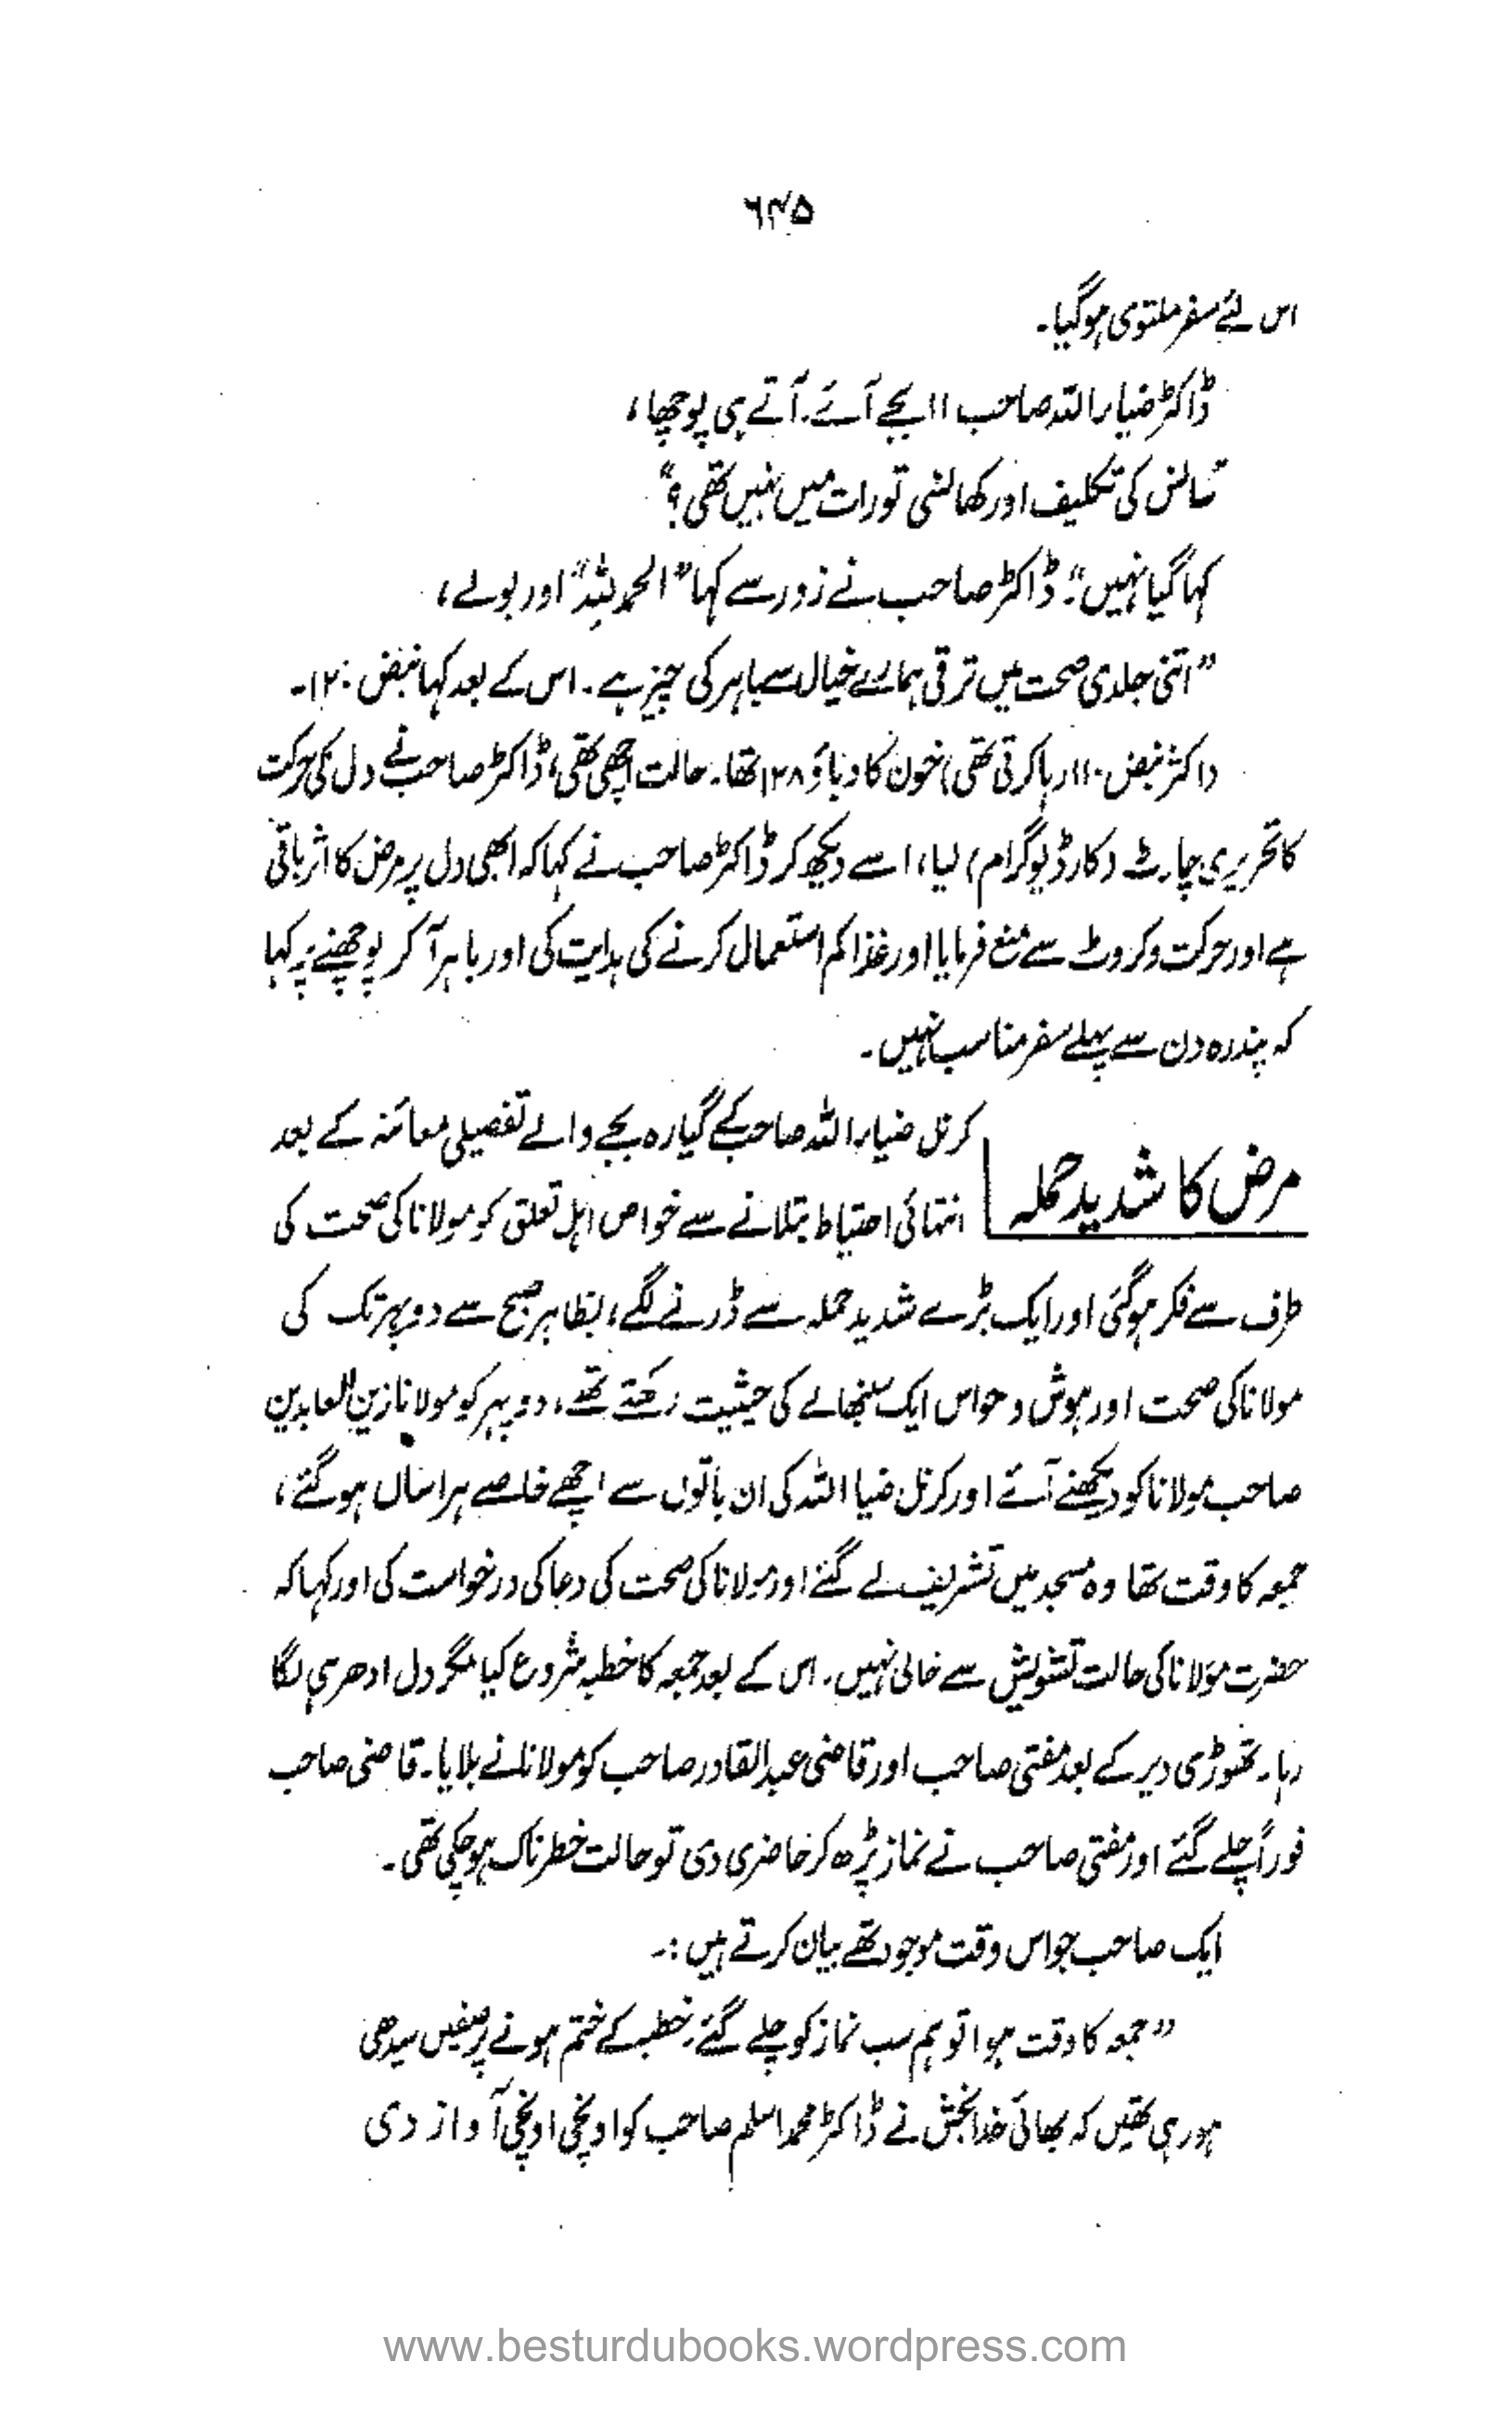 ۶۴۵
اس لئے سفر ملتوی ہوگیا۔
ڈاکٹر ضیاء اللہ صاحب ۱۱ بجے آئے۔ آتے ہی پوچھا،
"سانس کی تکلیف اور کھانسی تو رات میں نہیں تھی؟"
کہا گیا نہیں"۔ ڈاکٹر صاحب نے زور سے کہا "الحمد للہ" اور بولے،
"اتنی جلدی صحت میں ترقی ہمارے خیال سے باہر کی چیز ہے۔ اس کے بعد کہا نبض ۱۲۰۔
(اکثر نبض ۱۱۰ رہا کرتی تھی) خون کا دباؤ ۱۲۸ تھا۔ حالت اچھی تھی، ڈاکٹر صاحب نے دل کی حرکت
کا تحریری چارٹ (کارڈیوگرام) لیا، اسے دیکھ کر ڈاکٹر صاحب نے کہا کہ ابھی دل پر مرض کا اثر باقی
ہے اور حرکت و کروٹ سے منع فرمایا اور غذا کم استعمال کرنے کی ہدایت کی اور باہر آ کر پوچھنے پر کہا
کہ پندرہ دن سے پہلے سفر مناسب نہیں۔
مرض کا شدید حملہ
کرنل ضیاء اللہ صاحب کے گیارہ بجے والے تفصیلی معائنہ کے بعد
انتہائی احتیاط بتلانے سے خواص اہل تعلق کو مولانا کی صحت کی
طرف سے فکر ہوگئی اور ایک بڑے شدید حملہ سے ڈرنے لگے، بظاہر صبح سے دوپہر تک کی
مولانا کی صحت اور ہوش و حواس ایک سنبھالے کی حیثیت رکھتے تھے، دوپہر کو مولانا زین العابدین
صاحب مولانا کو دیکھنے آئے اور کرنل ضیا اللہ کی ان باتوں سے اچھے خاصے ہراساں ہوگئے،
جمعہ کا وقت تھا وہ مسجد میں تشریف لے گئے اور مولانا کی صحت کی دعا کی درخواست کی اور کہا کہ
حضرت مولانا کی حالت تشویش سے خالی نہیں۔ اس کے بعد جمعہ کا خطبہ شروع کیا مگر دل ادھر ہی لگا
رہا۔ تھوڑی دیر کے بعد مفتی صاحب اور قاضی عبدالقادر صاحب کو مولانا نے بلایا۔ قاضی صاحب
فوراً چلے گئے اور مفتی صاحب نے نماز پڑھ کر حاضری دی تو حالت خطرناک ہوچکی تھی۔
ایک صاحب جو اس وقت موجود تھے بیان کرتے ہیں:۔
"جمعہ کا وقت ہوا تو ہم سب نماز کو چلے گئے۔ خطبہ کے ختم ہونے پر صفیں سیدھی
ہو رہی تھیں کہ بھائی خدا بخش نے ڈاکٹر محمد اسلم صاحب کو اونچی اونچی آواز دی
www.besturdubooks.wordpress.com